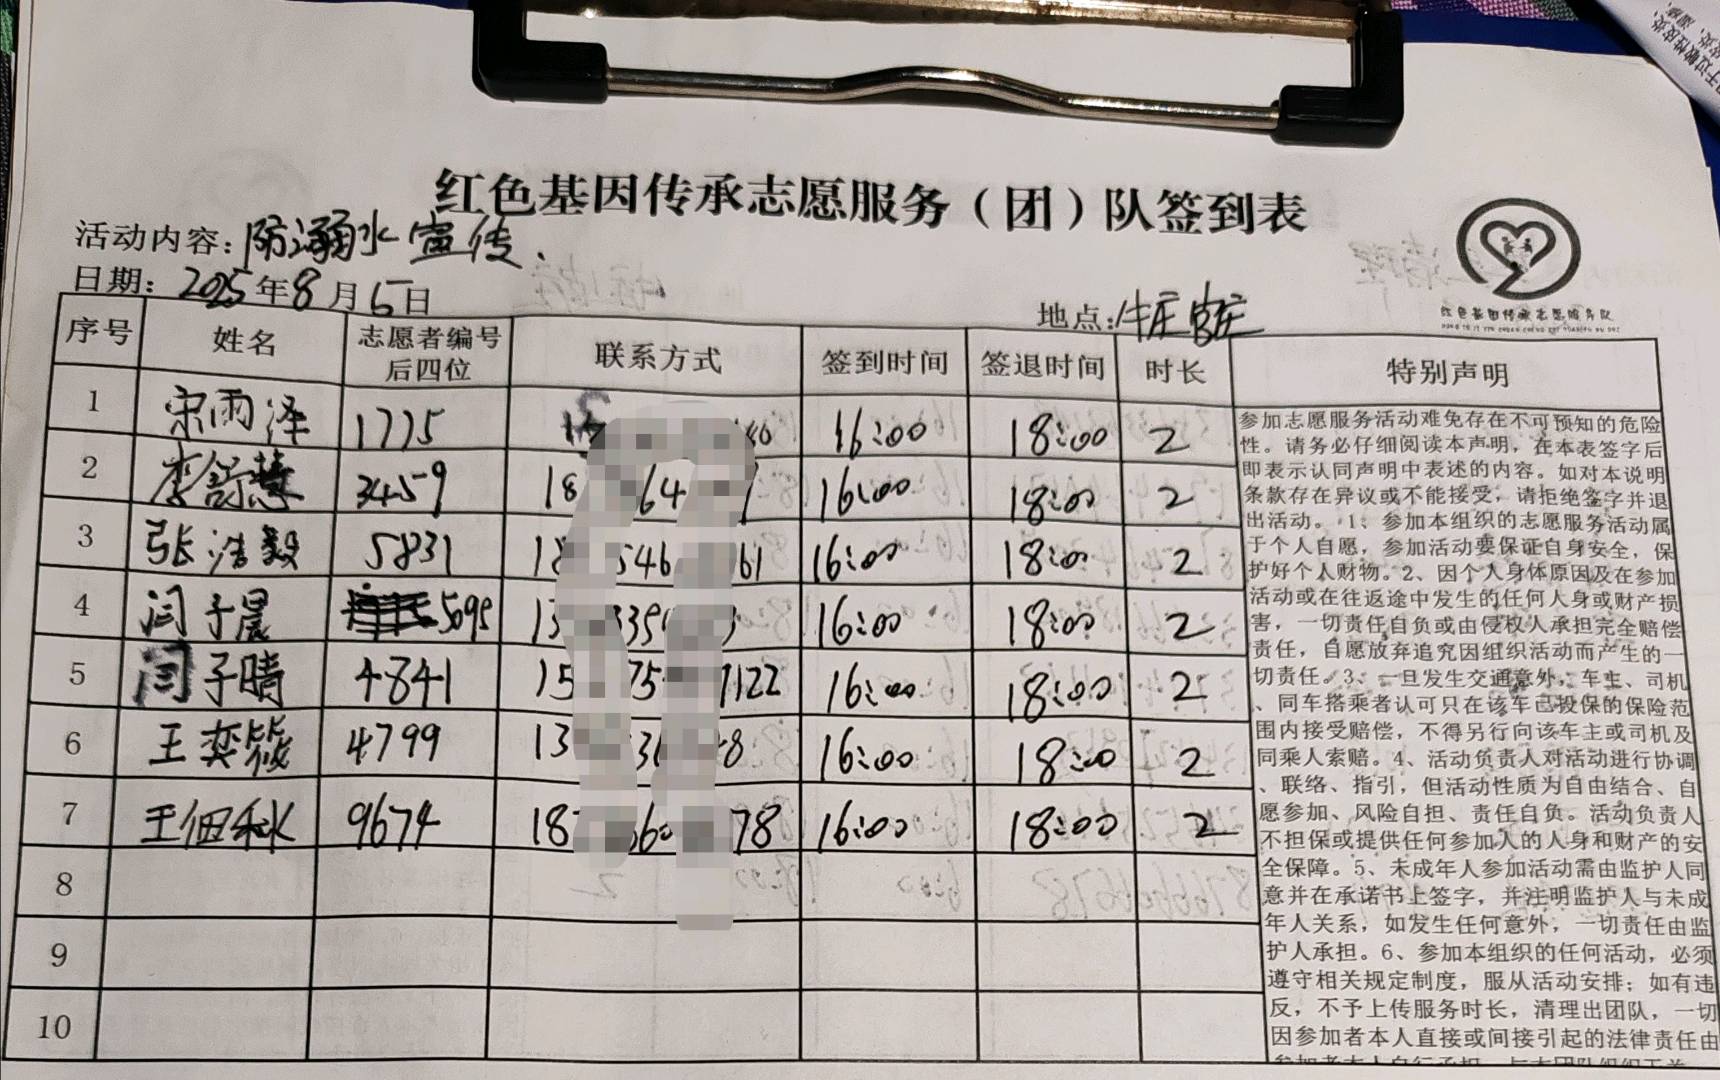 红色基因传承志愿服务（团）队签到表
活动内容：防溺水宣传.
日期：2025年8月5日
地点：
红色基因传承志愿服务队
序号 姓名 志愿者编号后四位 联系方式 签到时间 签退时间 时长 特别声明
1 宋雨泽 1775 16:00 18:00 2
2 李舒慧 3459 18 64 16:00 18:00 2
3 张浩毅 5831 18 546 61 16:00 18:00 2
4 闫子晨 5095 13 335 16:00 18:00 2
5 闫子晴 4841 15 75 1122 16:00 18:00 2
6 王奕筱 4799 13 3 8 16:00 18:00 2
7 王佃秋 9674 18 60 78 16:00 18:00 2
8
9
10
参加志愿服务活动难免存在不可预知的危险
性。请务必仔细阅读本声明，在本表签字后
即表示认同声明中表述的内容。如对本说明
条款存在异议或不能接受，请拒绝签字并退
出活动。1、参加本组织的志愿服务活动属
于个人自愿，参加活动要保证自身安全，保
护好个人财物。2、因个人身体原因及在参加
活动或在往返途中发生的任何人身或财产损
害，一切责任自负或由侵权人承担完全赔偿
责任，自愿放弃追究因组织活动而产生的一
切责任。3、一旦发生交通意外，车主、司机
、同车搭乘者认可只在该车已投保的保险范
围内接受赔偿，不得另行向该车主或司机及
同乘人索赔。4、活动负责人对活动进行协调
、联络、指引，但活动性质为自由结合、自
愿参加、风险自担、责任自负。活动负责人
不担保或提供任何参加人的人身和财产的安
全保障。5、未成年人参加活动需由监护人同
意并在承诺书上签字，并注明监护人与未成
年人关系，如发生任何意外，一切责任由监
护人承担。6、参加本组织的任何活动，必须
遵守相关规定制度，服从活动安排；如有违
反，不予上传服务时长，清理出团队，一切
因参加者本人直接或间接引起的法律责任由